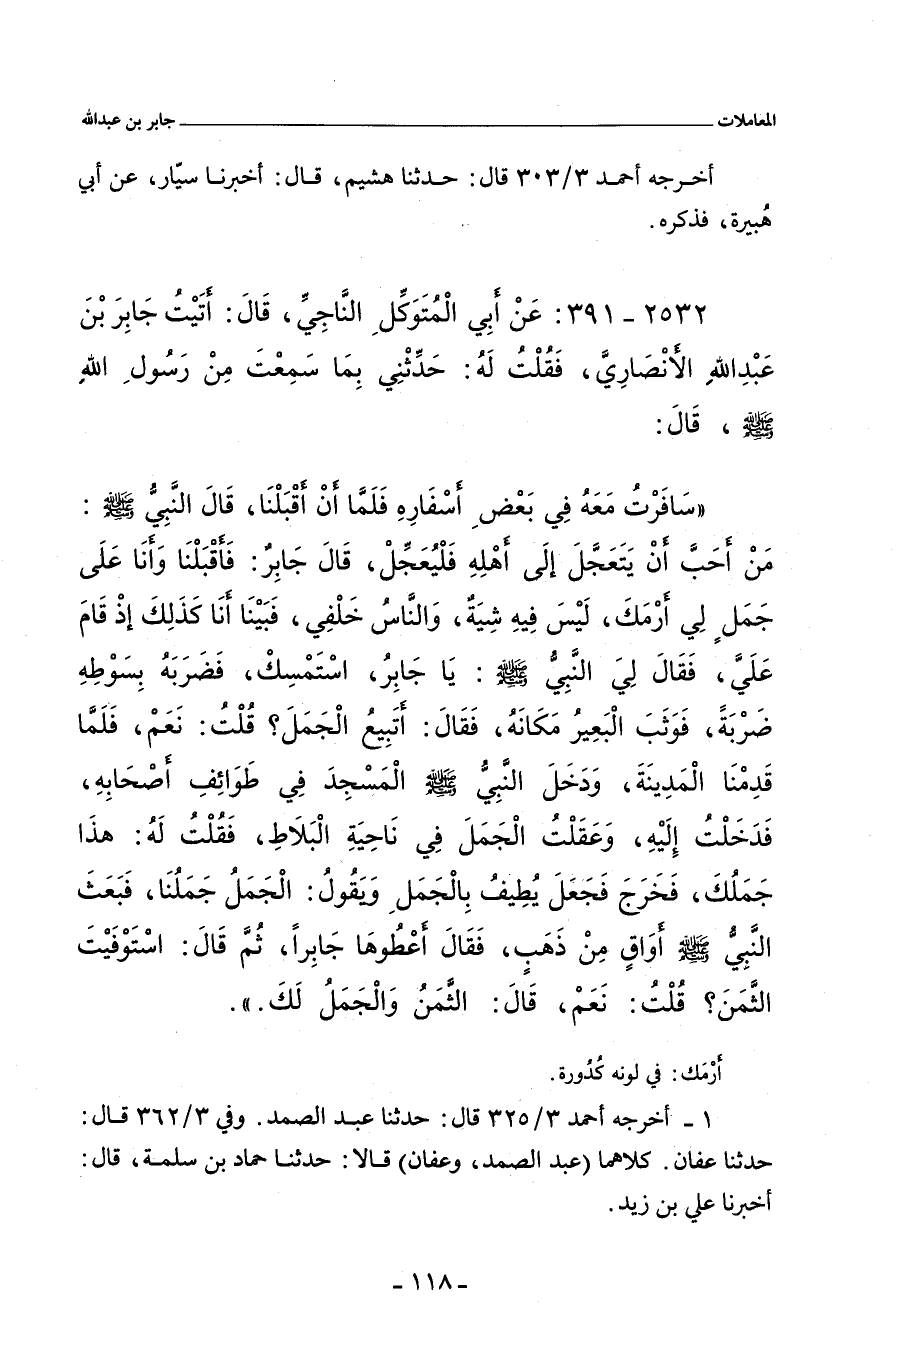 المعاملات ــــــــــــ جابر بن عبدالله
أخـرجه أحمـد ٣٠٣/٣ قال: حـدثنا هشيم، قـال: أخبرنـا سيّار، عن أبي
هُبيرة، فذكره.
٢٥٣٢ - ٣٩١: عَنْ أَبِي الْمُتَوَكِّلِ النَّاجِيِّ، قَالَ: أَتَيْتُ جَابِرَ بْنَ
عَبْدِاللهِ الأَنْصَارِيَّ، فَقُلْتُ لَهُ: حَدِّثْنِي بِمَا سَمِعْتَ مِنْ رَسُولِ اللهِ
ﷺ، قَالَ:
«سَافَرْتُ مَعَهُ فِي بَعْضِ أَسْفَارِهِ فَلَمَّا أَنْ أَقْبَلْنَا، قَالَ النَّبِيُّ ﷺ:
مَنْ أَحَبَّ أَنْ يَتَعَجَّلَ إِلَى أَهْلِهِ فَلْيُعَجِّلْ، قَالَ جَابِرٌ: فَأَقْبَلْنَا وَأَنَا عَلَى
جَمَلٍ لِي أَرْمَكَ، لَيْسَ فِيهِ شِيَةٌ، وَالنَّاسُ خَلْفِي، فَبَيْنَا أَنَا كَذَلِكَ إِذْ قَامَ
عَلَيَّ، فَقَالَ لِيَ النَّبِيُّ ﷺ: يَا جَابِرُ، اسْتَمْسِكْ، فَضَرَبَهُ بِسَوْطِهِ
ضَرْبَةً، فَوَثَبَ الْبَعِيرُ مَكَانَهُ، فَقَالَ: أَتَبِيعُ الْجَمَلَ؟ قُلْتُ: نَعَمْ، فَلَمَّا
قَدِمْنَا الْمَدِينَةَ، وَدَخَلَ النَّبِيُّ ﷺ الْمَسْجِدَ فِي طَوَائِفِ أَصْحَابِهِ،
فَدَخَلْتُ إِلَيْهِ، وَعَقَلْتُ الْجَمَلَ فِي نَاحِيَةِ الْبَلَاطِ، فَقُلْتُ لَهُ: هذَا
جَمَلُكَ، فَخَرَجَ فَجَعَلَ يُطِيفُ بِالْجَمَلِ وَيَقُولُ: الْجَمَلُ جَمَلُنَا، فَبَعَثَ
النَّبِيُّ ﷺ أَوَاقٍ مِنْ ذَهَبٍ، فَقَالَ أَعْطُوهَا جَابِراً، ثُمَّ قَالَ: اسْتَوْفَيْتَ
الثَّمَنَ؟ قُلْتُ: نَعَمْ، قَالَ: الثَّمَنُ وَالْجَمَلُ لَكَ.».
أَرْمَك: في لونه كُدُورة.
١ - أخرجه أحمد ٣٢٥/٣ قال: حدثنا عبـد الصمـد. وفي ٣٦٢/٣ قـال:
حدثنا عفان. كلاهما (عبد الصمد، وعفان) قـالا: حدثنـا حماد بن سلمـة، قال:
أخبرنا علي بن زيد.
- ١١٨ -